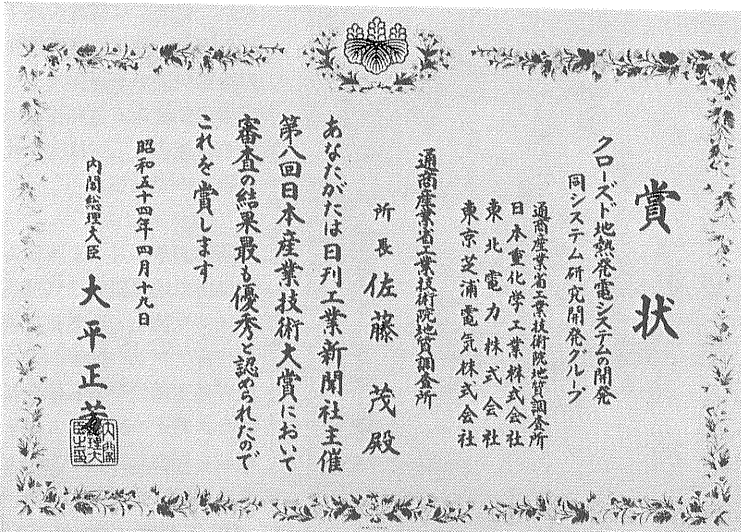 賞状
クローズト地熱発電システムの開発
同システム研究開発グループ
通商産業省工業技術院地質調査所
日本重化学工業株式会社
東北電力株式会社
東京芝浦電気株式会社
通商産業省工業技術院地質調査所
所長 佐藤 茂殿
あなたがたは日刊工業新聞社主催
第八回日本産業技術大賞において
審査の結果最も優秀と認められたので
これを賞します
昭和五十四年四月十九日
内閣総理大臣 大平正芳
内閣総理大臣之印